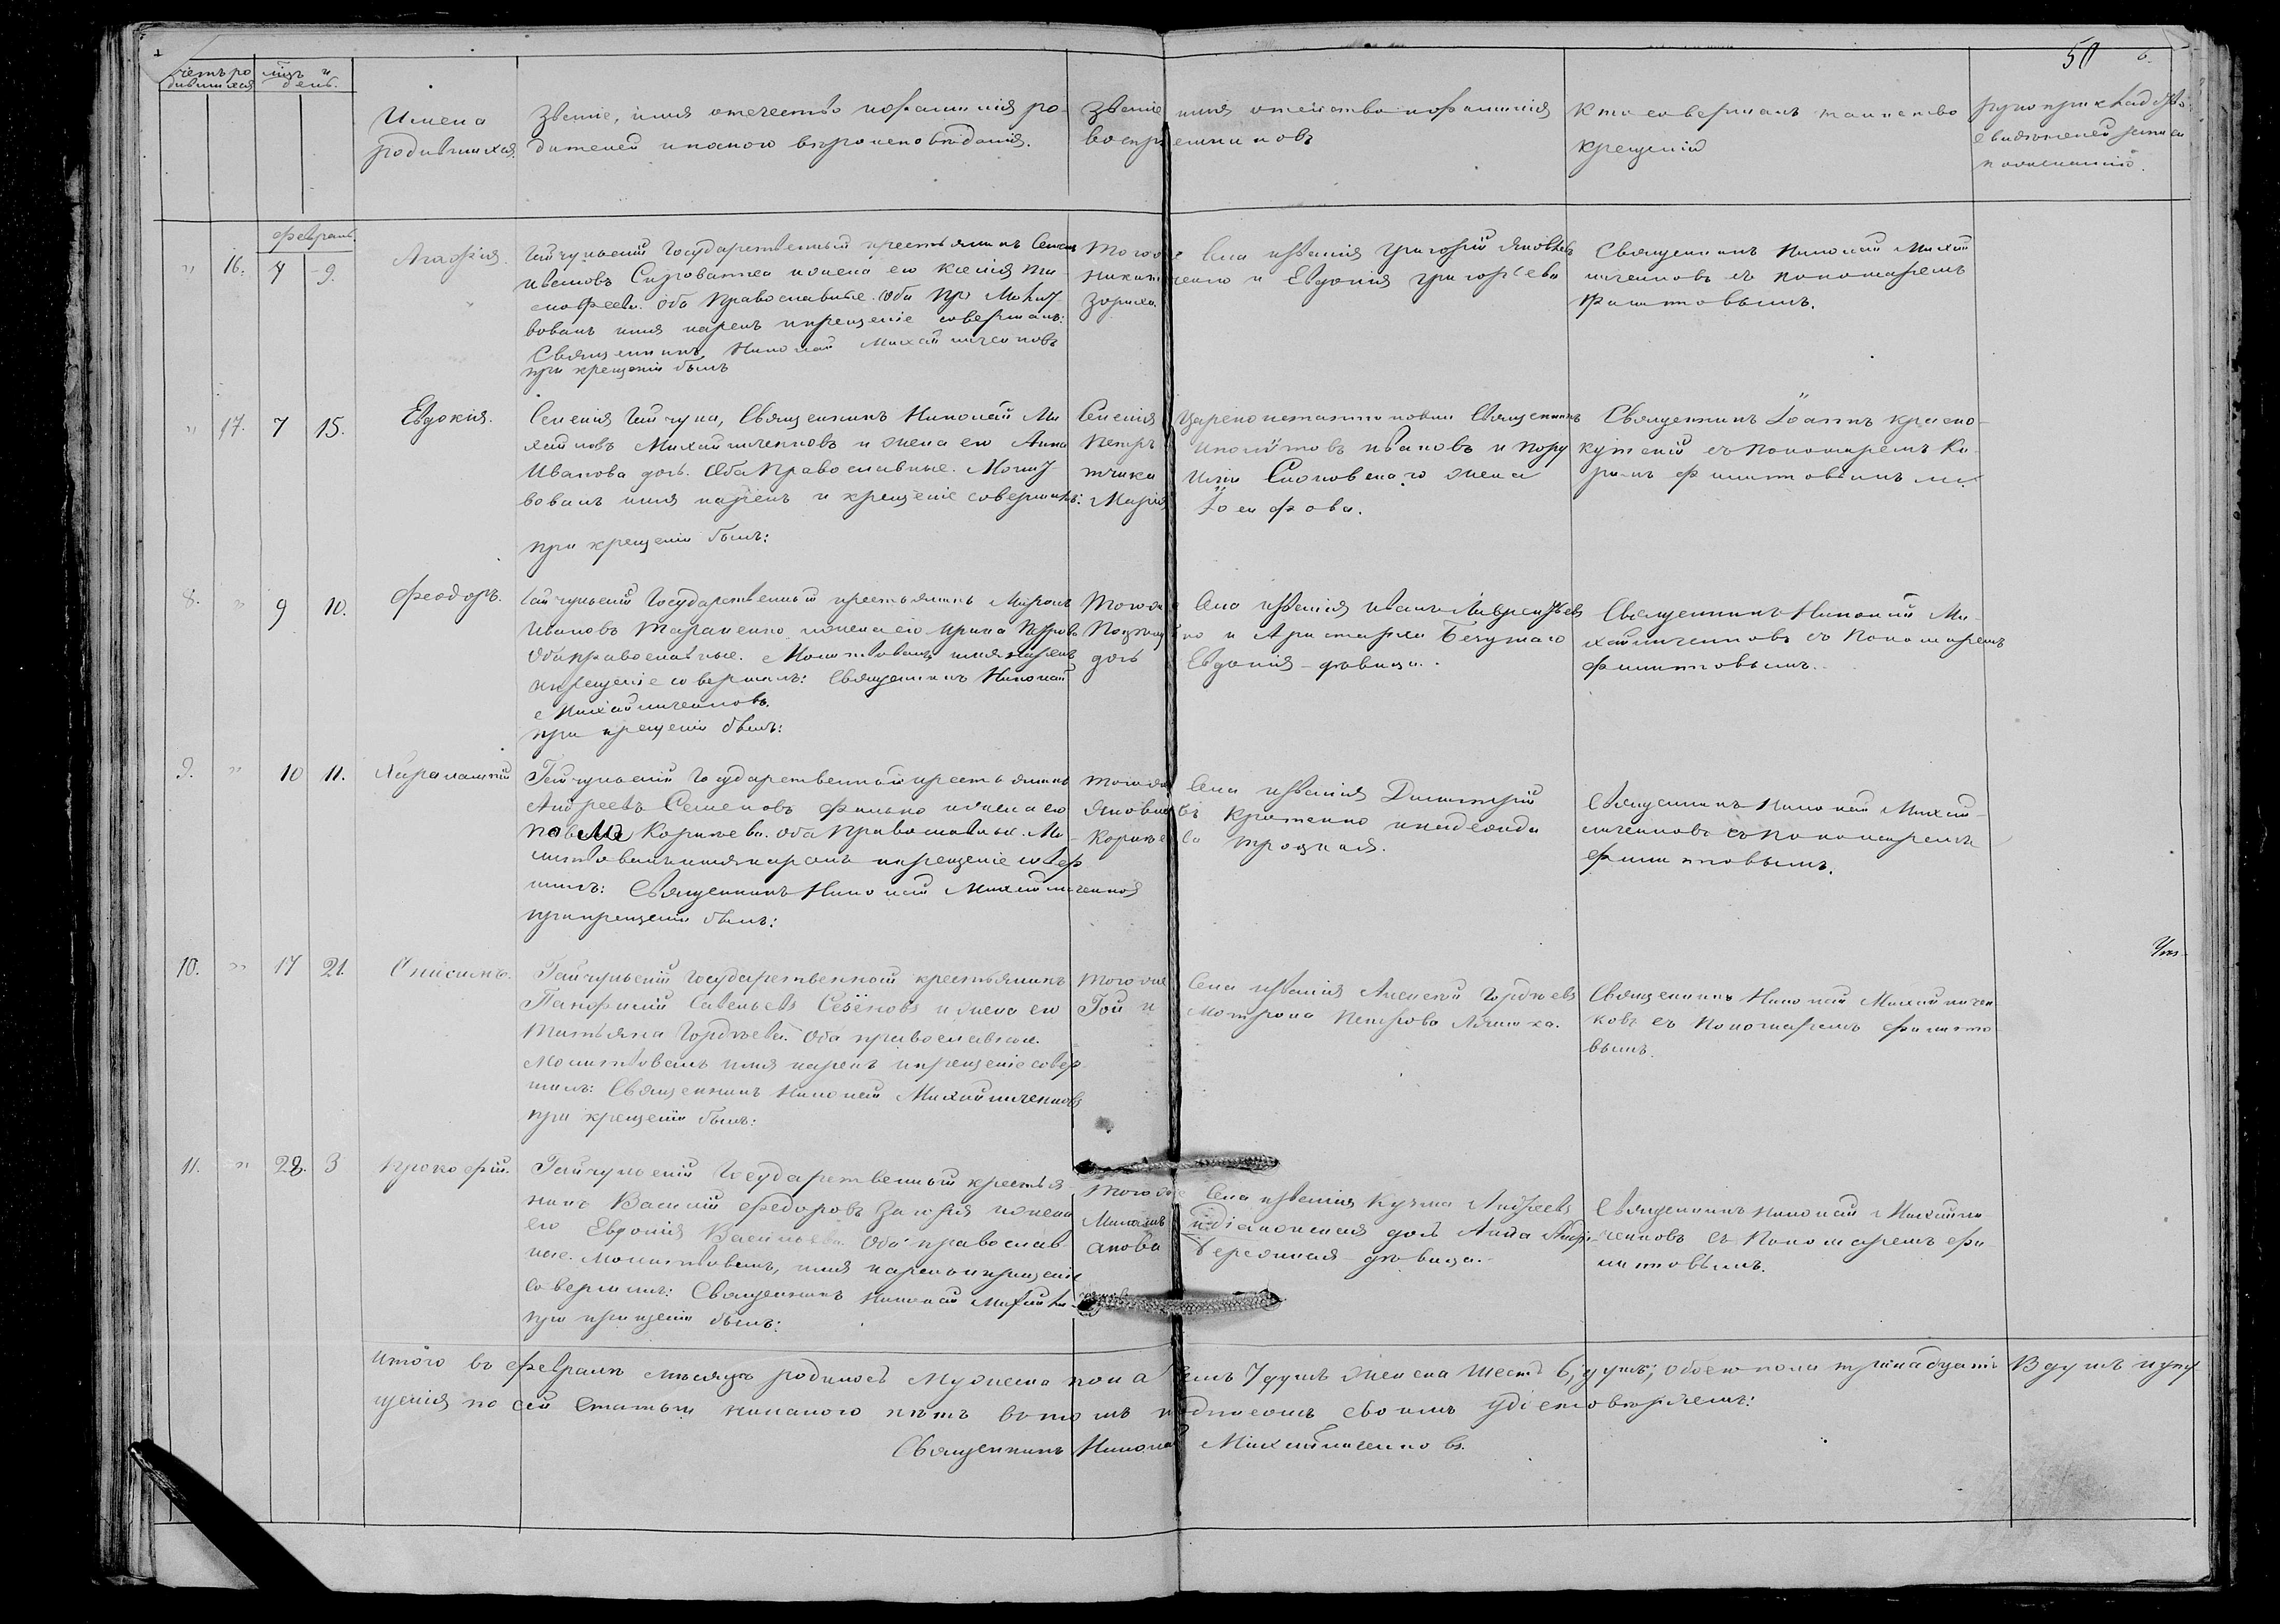 50
Счетъ ро
дившихся
мѣсяцъ и
день.
Имена
родившихся.
Званіе, имя отечество ифамилія ро-
дителей икакого вѣроисповѣданія.
Званіе имя отечество ифамилія
воспріемниковъ
Кто совершалъ таинство
крещенія
рукоприкладство
свидетелей записи
пожеланію.
февраль.
" 16. 7 9.
Агафія.
Гайчульскій Государственный крестьянинъ Семенъ
Ивановъ Сыроватка ижена его Ксенія Ти
мофеева. оба православные.
вовалъ имя нарекъ икрещеніе совершалъ:
Священникъ Николай Михайличенковъ
при крещеніи былъ
Тогоже Села и званія Григорій Яковлевъ
Никитченко и Евдокія Григорьева
Зориха.
Священникъ Николай Михай
личенковъ съ пономаремъ
Филиповымъ.
" 17. 7 15.
Евдокія.
Селенія Гайчула, Священникъ Николай Ми
хайловъ Михайличенковъ и жена его Анна
Иванова дочь. Оба Православные. Молит-
вовалъ имя нарекъ и крещеніе совершалъ:
при крещеніи былъ:
Селенія Цареконстантиновки Священникъ
Петръ Иполитовъ Ивановъ и пору
тчика жена
Марія Іосифова.
Священникъ Іоаннъ Красно-
кутскій съ пономаремъ
8. " 9 10.
Феодоръ.
Гайчульскій Государственный крестьянинъ Миронъ
Ивановъ Тараненко ижена его Ирина Петрова
Обаправославные. Молитвовалъ имя нарекъ
икрещеніе совершалъ: Священникъ Николай
Михайличенковъ.
при крещеніи былъ:
Тогоже Села изванія Иванъ Лаврентьевъ
и Аристарха Безумаго
дочь Евдокія дѣвица.
Священникъ Николай Ми-
хайличенковъ съ Пономаремъ
Филиповымъ.
9. " 10 11.
Харалампій
Гайчульскій Государственный крестьянинъ
Андреевъ Семеновъ Филько ижена его
Корнѣева. оба Православные. Мо-
литвовалъ имя нарекъ икрещеніе совер
шилъ: Священникъ Николай Михайличенковъ
прикрещеніи былъ:
Тогоже Села изванія Димитрій
Яковлевъ Кротенко
Корнѣева Троцкая.
Священникъ Николай Михай-
личенковъ съ Пономаремъ
Филиповымъ.
10. " 17 21.
Онисимъ.
Гайчульскій Государственной крестьянинъ
Панфилій Савельевъ ижена его
Татьяна Гордѣева. Оба православные.
Молитвовалъ имя нарекъ икрещеніе совер
шилъ: Священникъ Николай Михайличенковъ
при крещеніи былъ:
Тогоже Села изванія Алексѣй Гордѣевъ
Гой и Мотрона Петрова
Священникъ Николай Михайличен
ковъ съ Пономаремъ Филипо
вымъ.
11. " 28. 3
Прокофій.
Гайчульскій Государственный крестья
нинъ Василій Федоровъ ижена
его Евдокія Васильева Оба православ
ные. Молитвовалъ, имя нарекъ икрещеніе
совершилъ: Священникъ Николай Михайличенковъ
при крещеніи былъ:
Тогоже Села изванія Кузма Андреевъ
дочь Анна
дѣвица.
Священникъ Николай Михайли
ченковъ съ Пономаремъ Фи
липовымъ.
Итого въ февралѣ мѣсяцѣ родилось Мужеска пола семь 7 душъ женска шесть 6, душъ; обоего пола тринадцать 13 душъ ипу
щенія по сей статьи никакого нѣтъ вътомъ подписомъ своимъ удiстовѣряемъ:
Священникъ Николай Михайличенковъ.